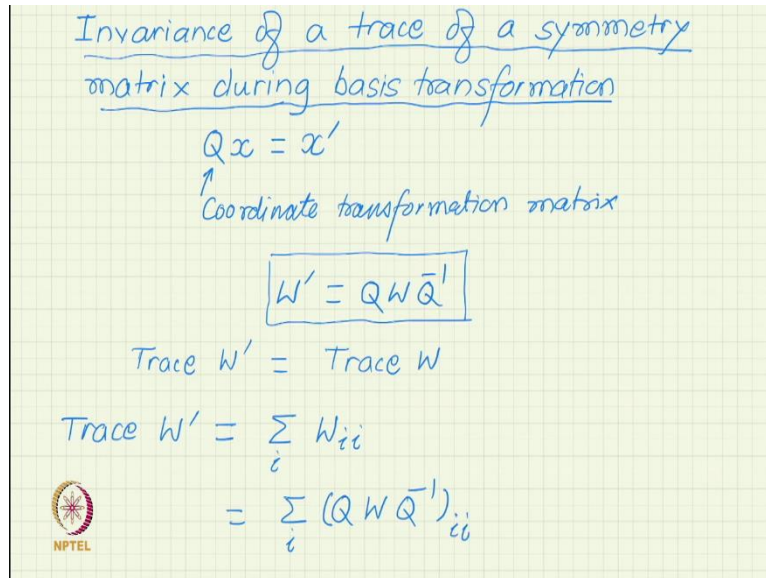 Invariance of a trace of a symmetry
matrix during basis transformation
Qx = x′
↑
Coordinate transformation matrix
W′ = QWQ⁻¹
Trace W′ = Trace W
Trace W′ = Σᵢ Wᵢᵢ
= Σᵢ (QWQ⁻¹)ᵢᵢ
NPTEL